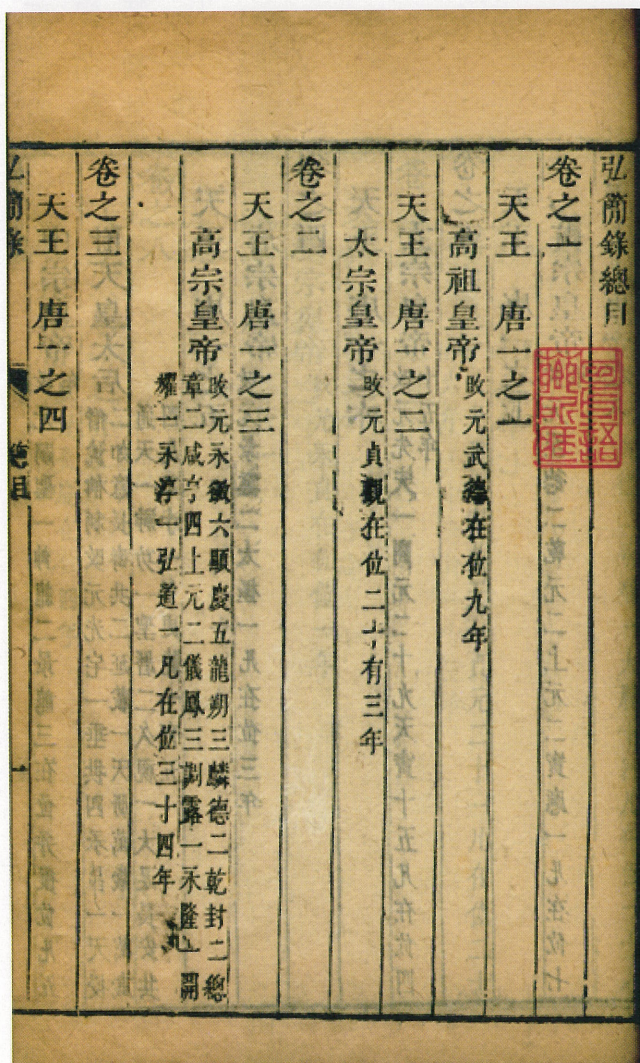 弘簡錄總目
卷之一
天王 唐一之一
高祖皇帝 改元武德在位九年
天王 唐一之二
太宗皇帝 改元貞觀在位二十有三年
卷之二
天王 唐一之三
高宗皇帝 改元永徽六顯慶五龍朔三麟德二乾封二總
章二咸亨四上元二儀鳳三調露一永隆一開
耀一永淳一弘道一凡在位三十四年
卷之三
天王 唐一之四
弘簡錄 總目 一